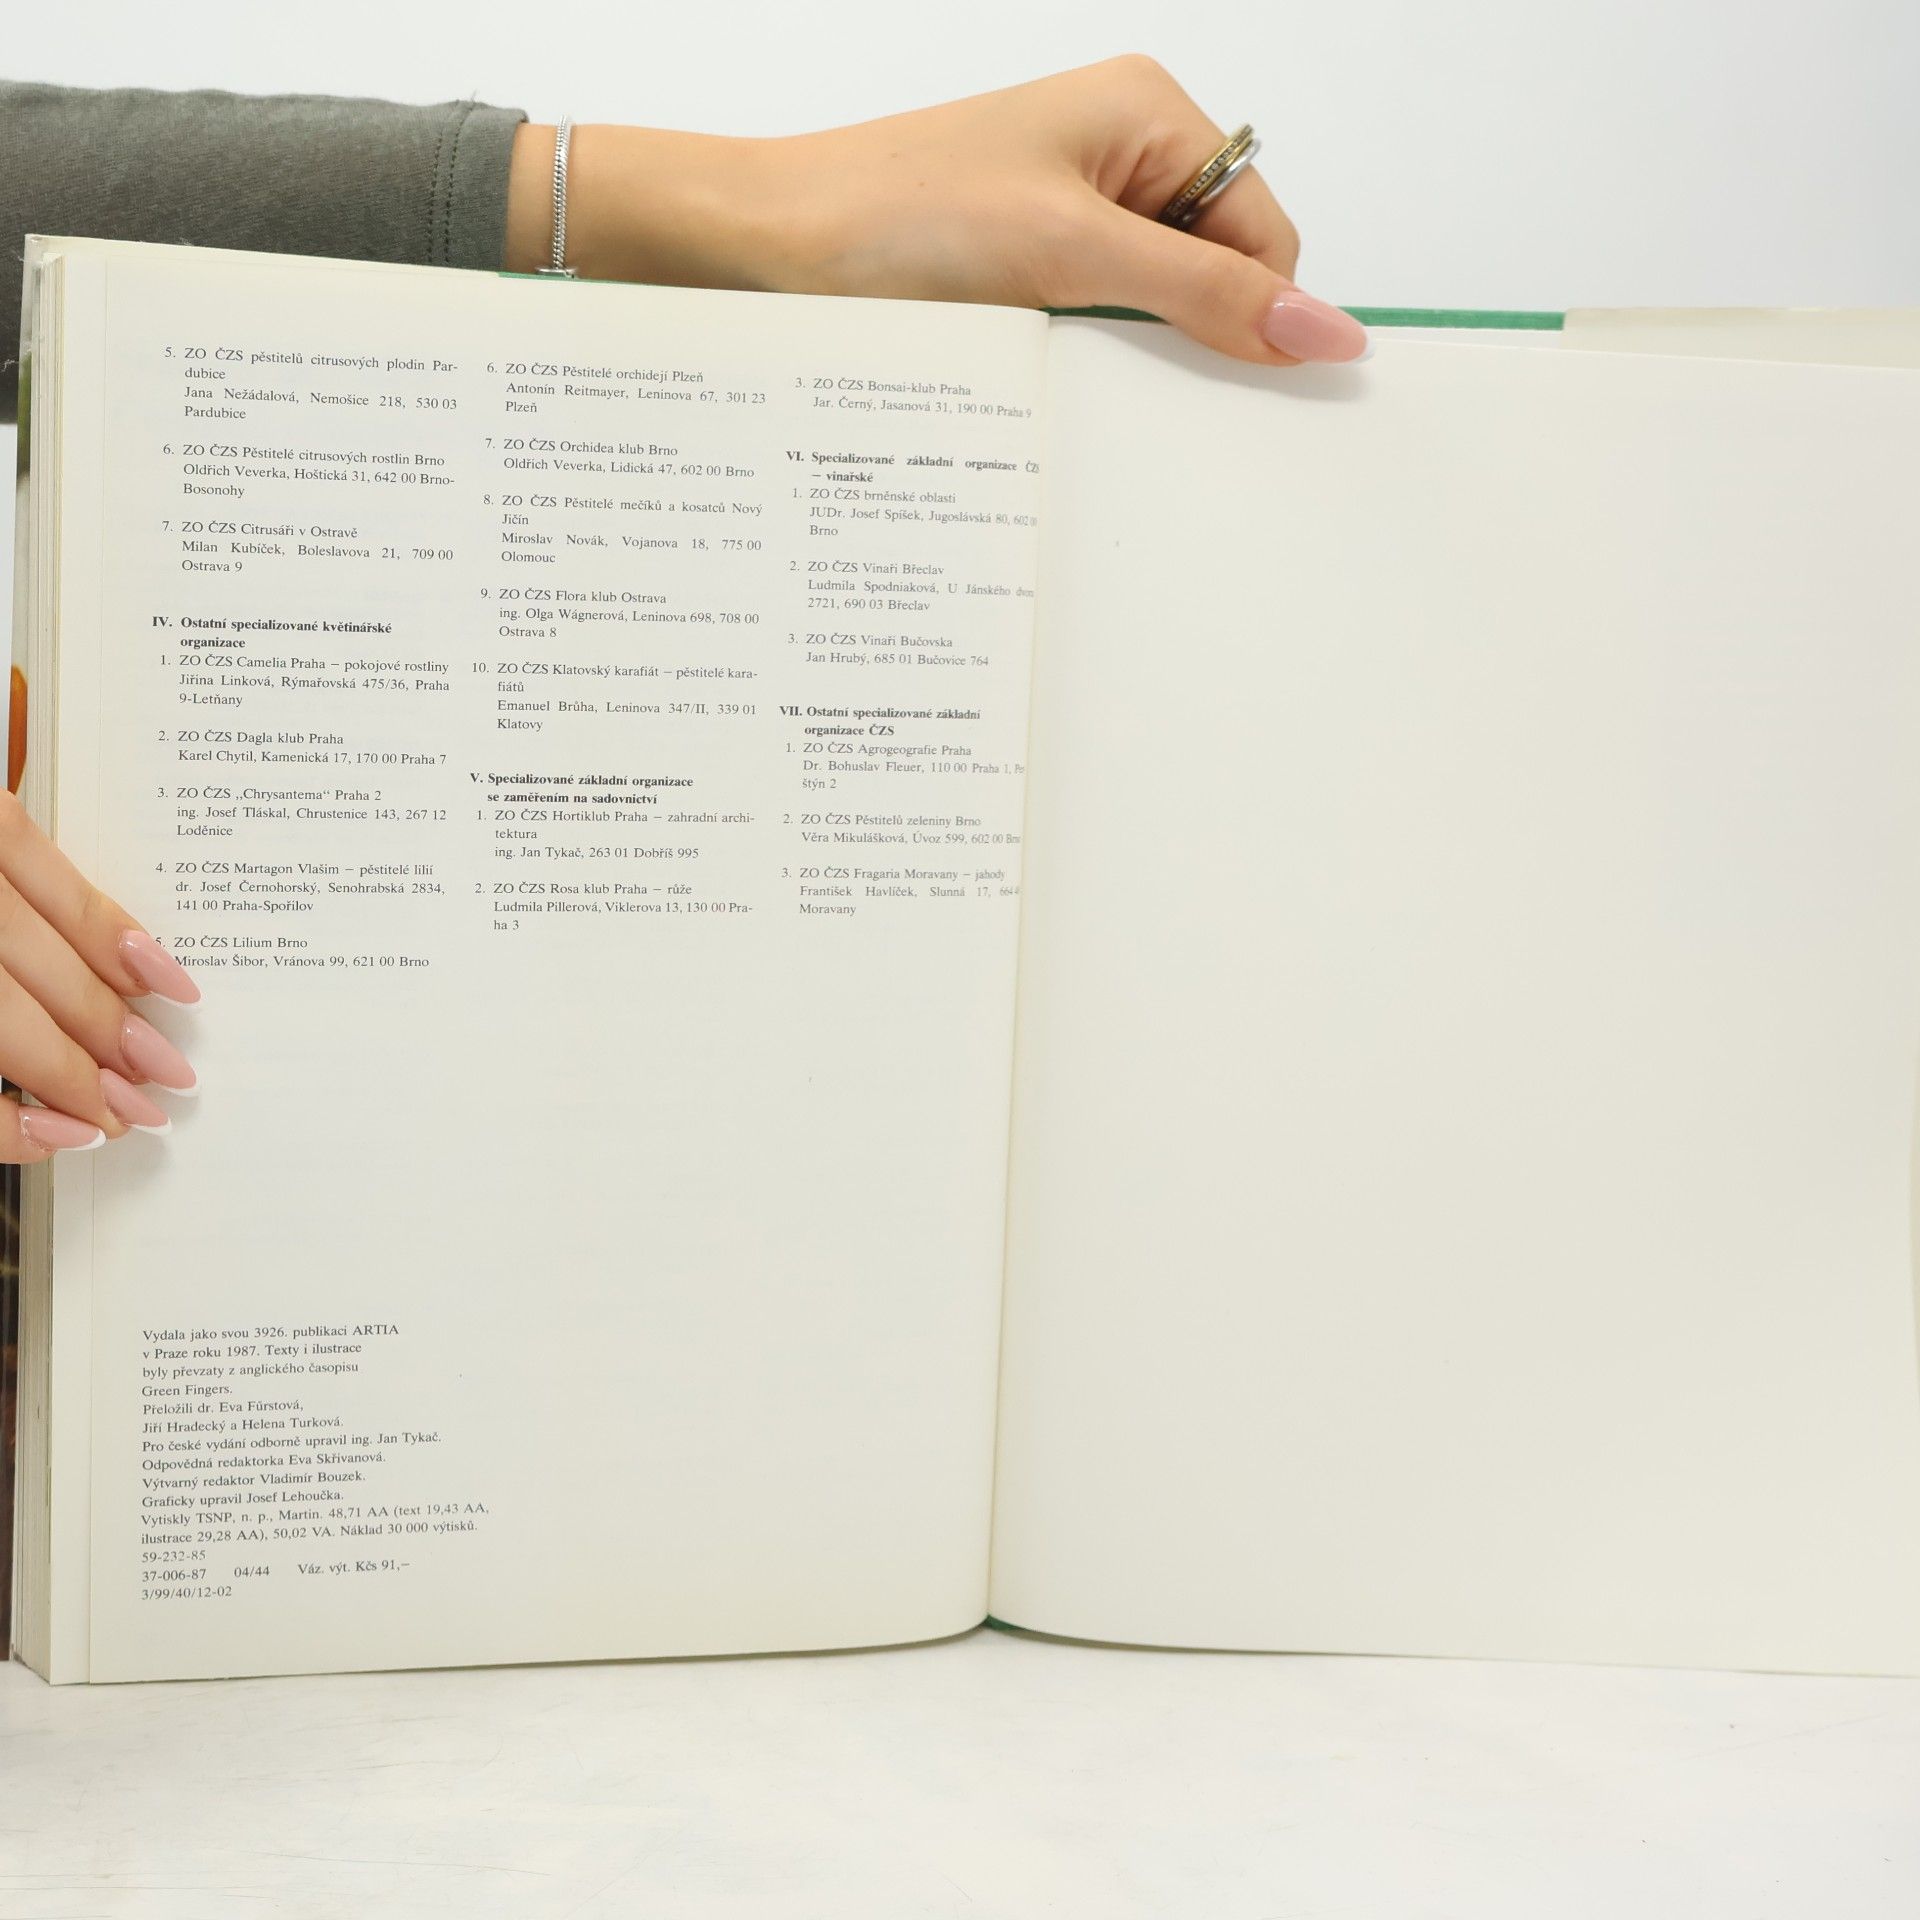 5. ZO ČZS pěstitelů citrusových plodin Par-
dubice
Jana Nežádalová, Nemošice 218, 530 03
Pardubice
6. ZO ČZS Pěstitelé citrusových rostlin Brno
Oldřich Veverka, Hoštická 31, 642 00 Brno-
Bosonohy
7. ZO ČZS Citrusáři v Ostravě
Milan Kubíček, Boleslavova 21, 709 00
Ostrava 9
IV. Ostatní specializované květinářské
organizace
1. ZO ČZS Camelia Praha – pokojové rostliny
Jiřina Linková, Rýmařovská 475/36, Praha
9-Letňany
2. ZO ČZS Dagla klub Praha
Karel Chytil, Kamenická 17, 170 00 Praha 7
3. ZO ČZS „Chrysantema“ Praha 2
ing. Josef Tláskal, Chrustenice 143, 267 12
Loděnice
4. ZO ČZS Martagon Vlašim – pěstitelé lilií
dr. Josef Černohorský, Senohrabská 2834,
141 00 Praha-Spořilov
5. ZO ČZS Lilium Brno
Miroslav Šibor, Vránova 99, 621 00 Brno
6. ZO ČZS Pěstitelé orchidejí Plzeň
Antonín Reitmayer, Leninova 67, 301 23
Plzeň
7. ZO ČZS Orchidea klub Brno
Oldřich Veverka, Lidická 47, 602 00 Brno
8. ZO ČZS Pěstitelé mečíků a kosatců Nový
Jičín
Miroslav Novák, Vojanova 18, 775 00
Olomouc
9. ZO ČZS Flora klub Ostrava
ing. Olga Wágnerová, Leninova 698, 708 00
Ostrava 8
10. ZO ČZS Klatovský karafiát – pěstitelé kara-
fiátů
Emanuel Brůha, Leninova 347/II, 339 01
Klatovy
V. Specializované základní organizace
se zaměřením na sadovnictví
1. ZO ČZS Hortiklub Praha – zahradní archi-
tektura
ing. Jan Tykač, 263 01 Dobříš 995
2. ZO ČZS Rosa klub Praha – růže
Ludmila Pillerová, Viklerova 13, 130 00 Pra-
ha 3
3. ZO ČZS Bonsai-klub Praha
Jar. Černý, Jasanová 31, 190 00 Praha 9
VI. Specializované základní organizace
– vinařské
1. ZO ČZS brněnské oblasti
JUDr. Josef Spíšek, Jugoslávská 80, 602 00
Brno
2. ZO ČZS Vinaři Břeclav
Ludmila Spodniaková, U Jánského
2721, 690 03 Břeclav
3. ZO ČZS Vinaři Bučovska
Jan Hrubý, 685 01 Bučovice 764
VII. Ostatní specializované základní
organizace ČZS
1. ZO ČZS Agrogeografie Praha
Dr. Bohuslav Fleuer, 110 00 Praha 1,
štýn 2
2. ZO ČZS Pěstitelů zeleniny Brno
Věra Mikulášková, Úvoz 599, 602 00
3. ZO ČZS Fragaria Moravany – jahody
František Havlíček, Slunná 17,
Moravany
Vydala jako svou 3926. publikaci ARTIA
v Praze roku 1987. Texty i ilustrace
byly převzaty z anglického časopisu
Green Fingers.
Přeložili dr. Eva Fürstová,
Jiří Hradecký a Helena Turková.
Pro české vydání odborně upravil ing. Jan Tykač.
Odpovědná redaktorka Eva Skřivanová.
Výtvarný redaktor Vladimír Bouzek.
Graficky upravil Josef Lehoučka.
Vytiskly TSNP, n. p., Martin. 48,71 AA (text 19,43 AA,
ilustrace 29,28 AA), 50,02 VA. Náklad 30 000 výtisků.
59-232-85
37-006-87 04/44 Váz. výt. Kčs 91,–
3/99/40/12-02